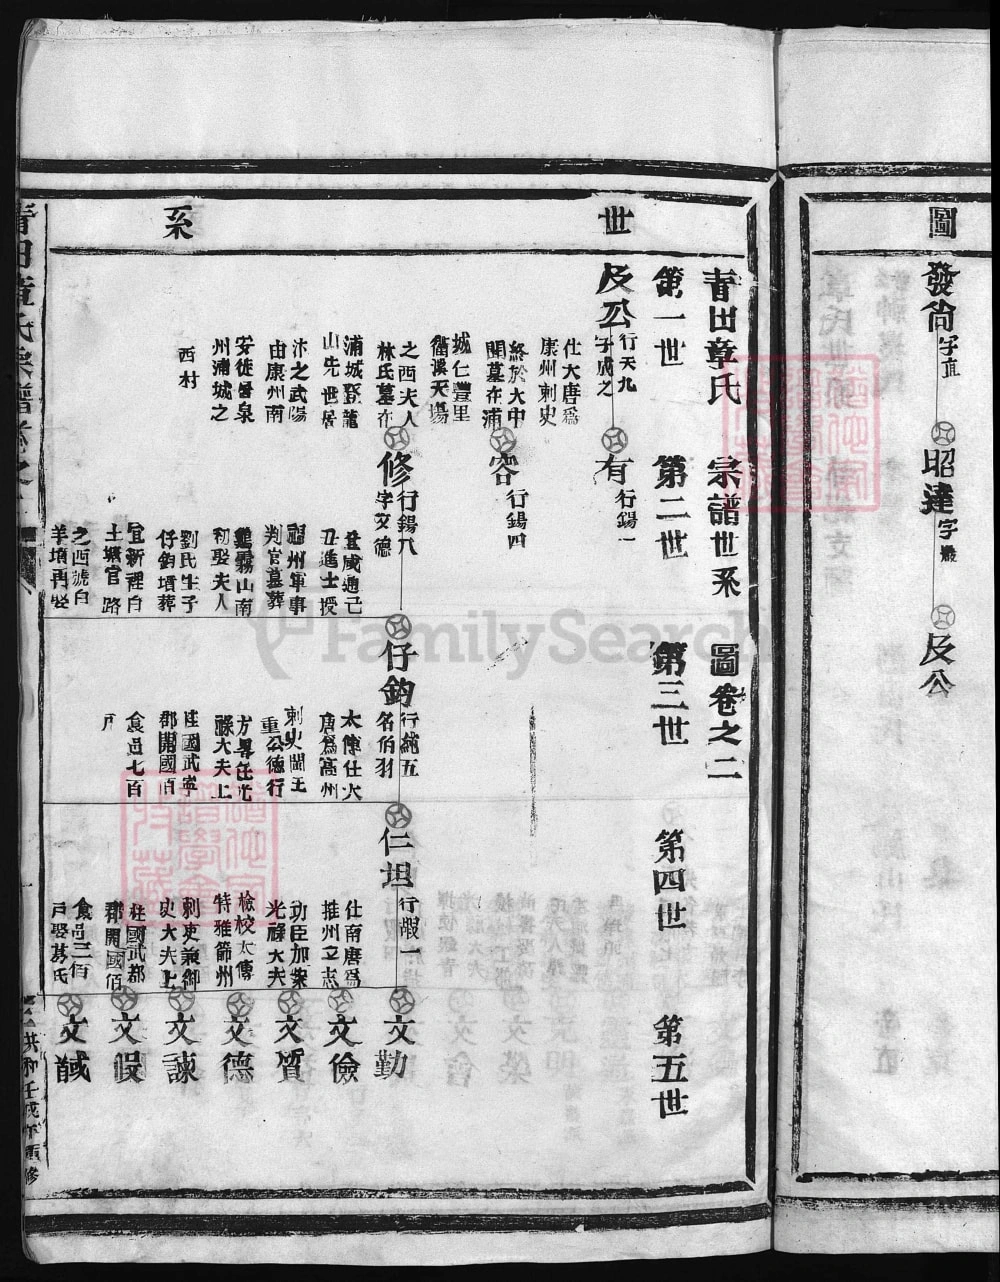 圖
發尚字直
昭達字嚴
及公
世
系
青田章氏宗譜世系圖卷之二
第一世
第二世
第三世
第四世
第五世
及公行天九
字成之
仕大唐爲
康州刺史
終於大中
開墓在浦
城仁豐里
衢溪天場
之西夫人
林氏墓在
浦城登龍
山先世居
汴之武陽
由康州南
安徙晉泉
州浦城之
西村
有行錫一
容行錫四
修行錫八
字文德
登咸通己
丑進士授
福州軍事
判官墓葬
鶴霧山南
初娶夫人
劉氏生子
仔鈞壻葬
宜新裡白
土壙官路
之西號白
羊墳再娶
仔鈞行純五
名伯羽
太傅仕大
唐爲高州
刺史閩王
重公德行
方畧任光
祿大夫上
柱國武寧
郡開國伯
食邑七百
戶
仁坦行暇一
仕南唐爲
推州立志
功臣加案
光祿大夫
檢校太傳
特雅節州
刺吏兼御
史大夫上
柱國武都
郡開國佰
食邑三佰
戶娶葛氏
文勤
文儉
文質
文德
文諫
文假
文馘
青田章氏宗譜卷之
洪和壬戌年重修
FamilySearch